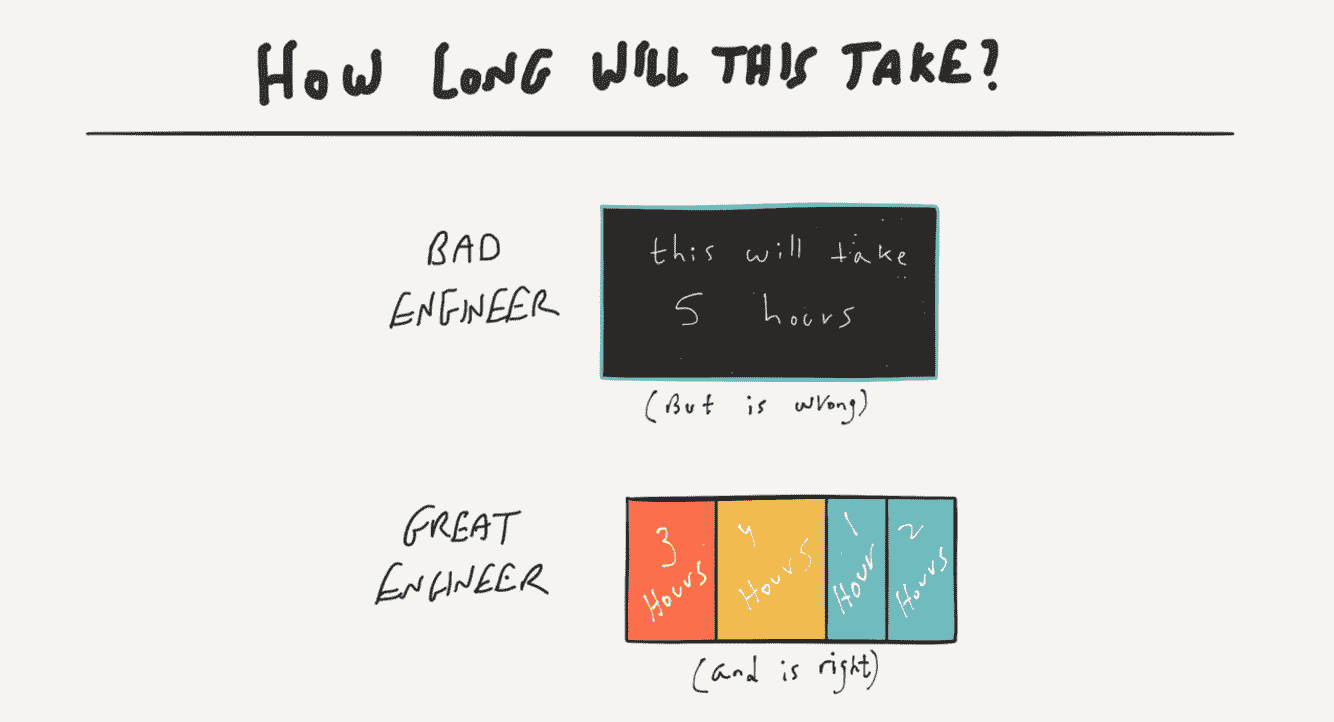 HOW LONG WILL THIS TAKE?
BAD
ENGINEER
this will take
5 hours
(But is wrong)
GREAT
ENGINEER
3
Hours
4
Hours
1
Hour
2
Hours
(and is right)